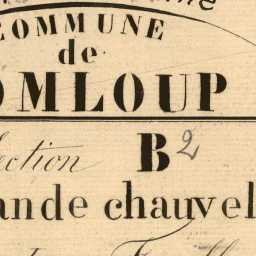 COMMUNE
de
OMLOUP
Section B2
ande chauvel